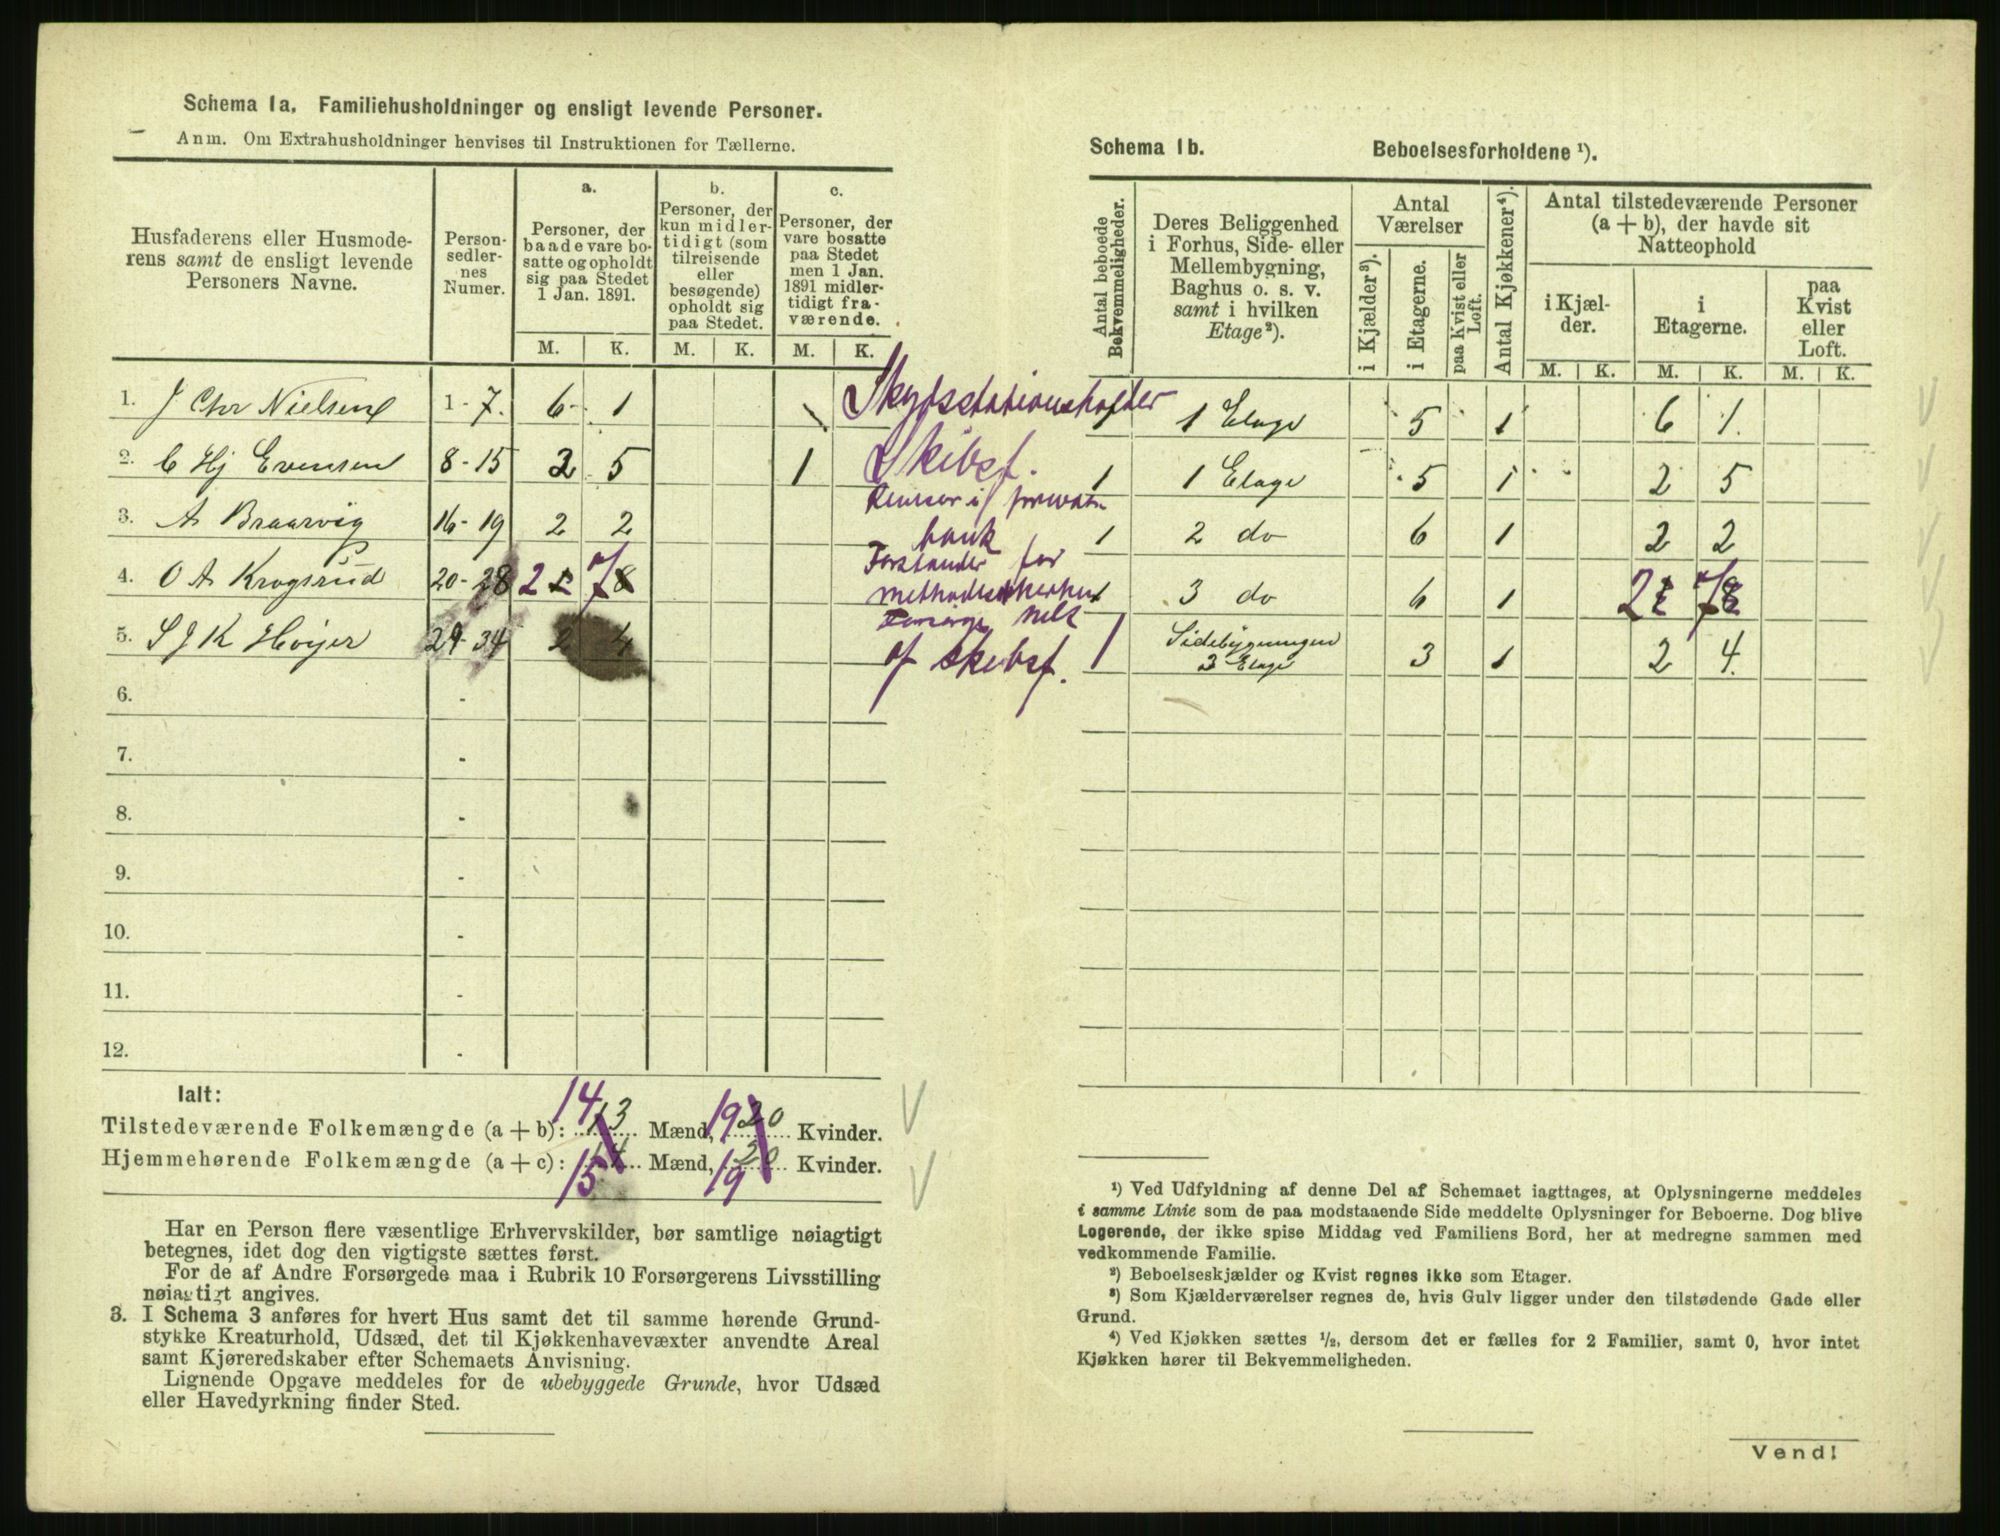 Schema 1a. Familiehusholdninger og ensligt levende Personer.
Anm. Om Extrahusholdninger henvises til Instruktionen for Tællerne.
Husfaderens eller Husmode-
rens samt de ensligt levende
Personers Navne.
Person-
sedler-
nes
Numer.
a.
Personer, der
baade vare bo-
satte og opholdt
sig paa Stedet
1 Jan. 1891.
b.
Personer, der
kun midler-
tidigt (som
tilreisende
eller
besøgende)
opholdt sig
paa Stedet.
c.
Personer, der
vare bosatte
paa Stedet
men 1 Jan.
1891 midler-
tidigt fra-
værende.
M. K. M. K. M. K.
1. J Chr Nielsen 1 - 7. 6 1 Skydsstationsholder
2. C Hj Evensen 8 - 15 2 5 1 Skibsf.
3. A Braarvig 16 - 19 2 2 Revisor i privatbank
4. O A Krogsrud 20 - 28 2 7 Forstander for
5. S J K Høijer 29 - 34 2 4 af Skibsf.
6. -
7. -
8. -
9. -
10. -
11. -
12. -
Ialt:
Tilstedeværende Folkemængde (a + b): 14 13 Mænd, 19 20 Kvinder.
Hjemmehørende Folkemængde (a + c): 15 14 Mænd, 19 20 Kvinder.
Har en Person flere væsentlige Erhvervskilder, bør samtlige nøiagtigt
betegnes, idet dog den vigtigste sættes først.
For de af Andre Forsørgede maa i Rubrik 10 Forsørgerens Livsstilling
nøiagtigt angives.
3. I Schema 3 anføres for hvert Hus samt det til samme hørende Grund-
stykke Kreaturhold, Udsæd, det til Kjøkkenhavevæxter anvendte Areal
samt Kjøreredskaber efter Schemaets Anvisning.
Lignende Opgave meddeles for de ubebyggede Grunde, hvor Udsæd
eller Havedyrkning finder Sted.
Schema 1b. Beboelsesforholdene ¹).
Antal beboede
Bekvemmeligheder.
Deres Beliggenhed
i Forhus, Side- eller
Mellembygning,
Baghus o. s. v.
samt i hvilken
Etage ²).
Antal
Værelser
i Kjælder ³).
i Etagerne.
paa Kvist eller
Loft.
Antal Kjøkkener ⁴).
Antal tilstedeværende Personer
(a + b), der havde sit
Natteophold
i Kjæl-
der.
i
Etagerne.
paa
Kvist
eller
Loft.
M. K. M. K. M. K.
1 1 Etage 5 1 6 1.
1 1 Etage 5 1 2 5
1 2 do 6 1 2 2
1 3 do 6 1 2 7
1 Sidebygningen
3 Etage 3 1 2 4.
¹) Ved Udfyldning af denne Del af Schemaet iagttages, at Oplysningerne meddeles
i samme Linie som de paa modstaaende Side meddelte Oplysninger for Beboerne. Dog blive
Logerende, der ikke spise Middag ved Familiens Bord, her at medregne sammen med
vedkommende Familie.
²) Beboelseskjælder og Kvist regnes ikke som Etager.
³) Som Kjælderværelser regnes de, hvis Gulv ligger under den tilstødende Gade eller
Grund.
⁴) Ved Kjøkken sættes ¹/₂, dersom det er fælles for 2 Familier, samt 0, hvor intet
Kjøkken hører til Bekvemmeligheden.
Vend!